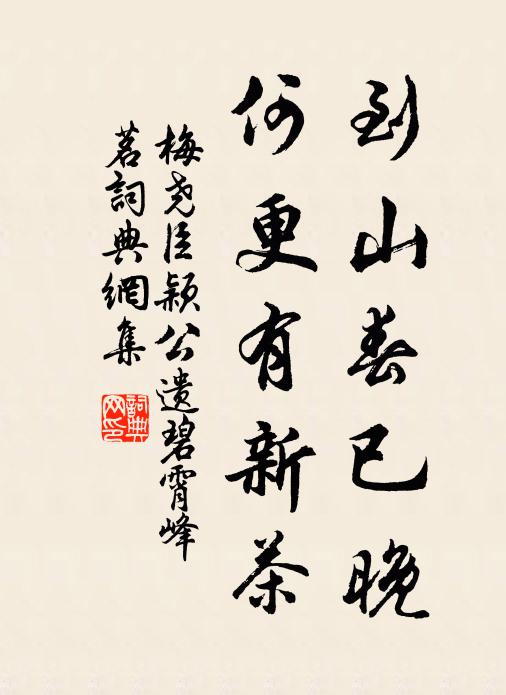 到山春已晚
何更有新茶
梅尧臣颖公遗碧霄峰
茗詞典網集
詞典网印